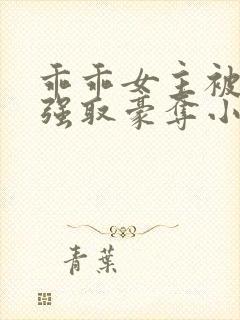 乖乖女主被
强取豪夺小
青葉